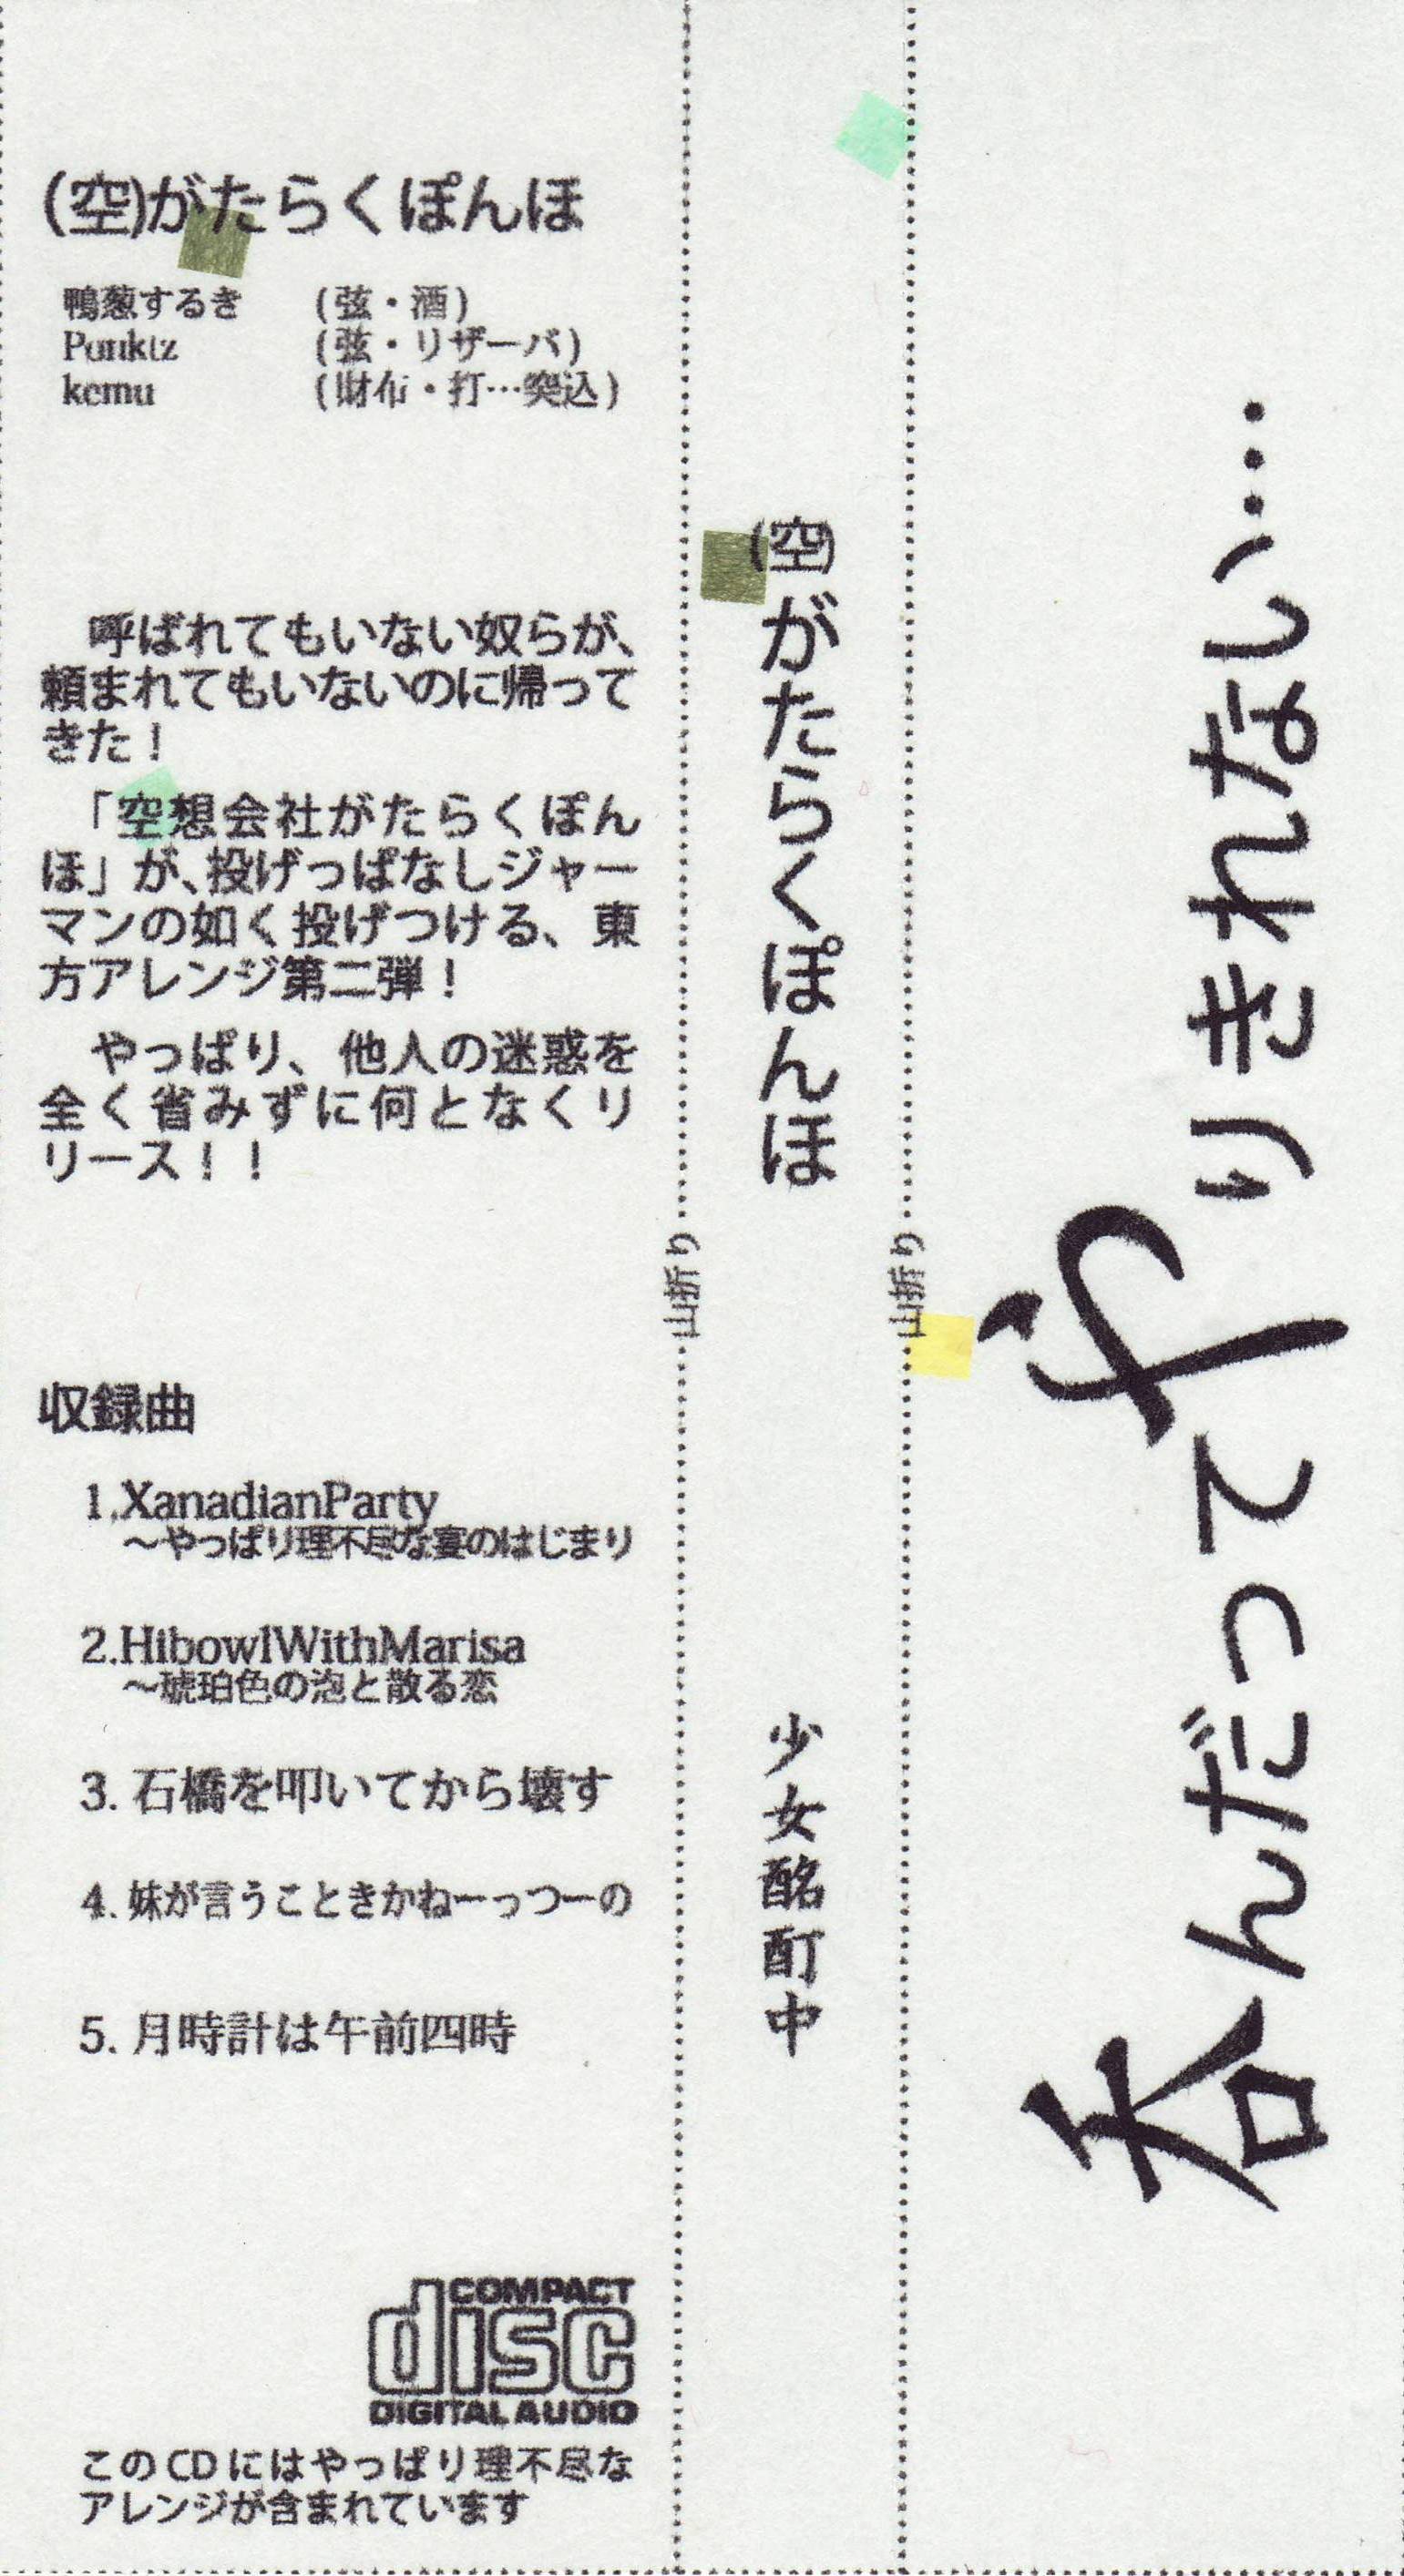 (空)がたらくぽんほ
鴨葱するき (弦・酒)
Punktz (弦・リザーバ)
kemu (財布・打…突込)
呼ばれてもいない奴らが、
頼まれてもいないのに帰って
きた！
「空想会社がたらくぽん
ほ」が、投げっぱなしジャー
マンの如く投げつける、東
方アレンジ第二弾！
やっぱり、他人の迷惑を
全く省みずに何となくリ
リース！！
収録曲
1.XanadianParty
～やっぱり理不尽な宴のはじまり
2.HibowlWithMarisa
～琥珀色の泡と散る恋
3. 石橋を叩いてから壊す
4. 妹が言うこときかねーっつーの
5. 月時計は午前四時
COMPACT
disc
DIGITAL AUDIO
このCDにはやっぱり理不尽な
アレンジが含まれています
山折り
(空)がたらくぽんほ
少女酩酊中
山折り
呑んだってやりきれない…